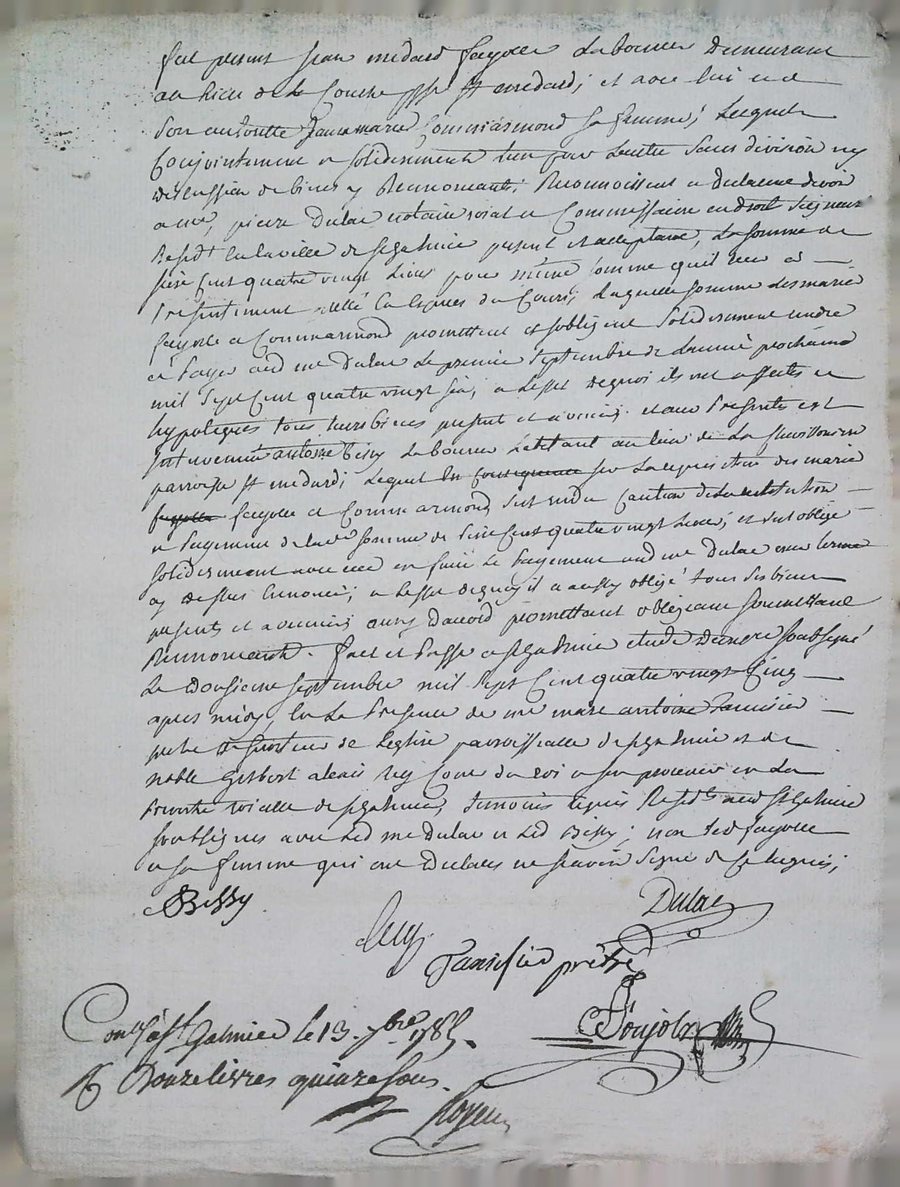 fut présent jean médard fayolle laboureur demeurant
au lieu de la Conche psse st médard; et avec lui et de
son autorité Janne marie Commarmond sa femme; lesquels
Conjointement et solidairement l'un pour l'autre sans division ny
discussion de biens y Rennonceants; Reconnoissent et declarent devoir
a me, pierre dulac notaire roial et Commissaire en droit seigneur
Residt en la ville de st galmier present et acceptant, la somme de
sept Cent quatre vingt livres pour même somme qu'il leur a
présentement en espèces du Cours; laquelle somme les mariés
fayolle et Commarmond promettent et s'obligent solidairement rendre
et payer aud me Dulac le premier septembre de l'année prochaine
mil sept Cent quatre vingt six, a l'effet de quoi ils ont affecté et
hypotéqués tous leurs biens present et avenir; et aux présentes est
intervenu antoine Bissy laboureur habitant au lieu de la
parroisse st médard; lequel en conséquence sur la requisition des mariés
fayolle fayolle et Commarmond s'est rendu caution de la restitution
et payement de lad somme de sept Cent quatre vingt livres; et s'est obligé
solidairement avec eux en faire le payement aud me Dulac au terme
cy dessus énoncé; a l'effet de quoi il a aussy obligé tous ses biens
présents et avenir; ainsy d'accord promettant obligeant soumettant
Rennonceant. fait et passé a st galmier étude du nore soubsigné
Le Douzieme septembre mil sept Cent quatre vingt Cinq
apres midy, en la présence de me marc antoine Tamisier
prêtre de l'église parroissialle de st galmier et de
noble Gilbert alexis rey Coner du roi et son procureur en la
royalle de st galmier, témoins requis Residts aud st galmier
soussignés avec led me Dulac et led Bissy; non led fayolle
et sa femme qui ont déclaré ne sçavoir signé de ce enquis;
Bissy
Dulac
Rey
Tamisier prêtre
Poujola
Conllé à st Galmier le 13. 7bre 1785.
R Douze livres quinze sous.